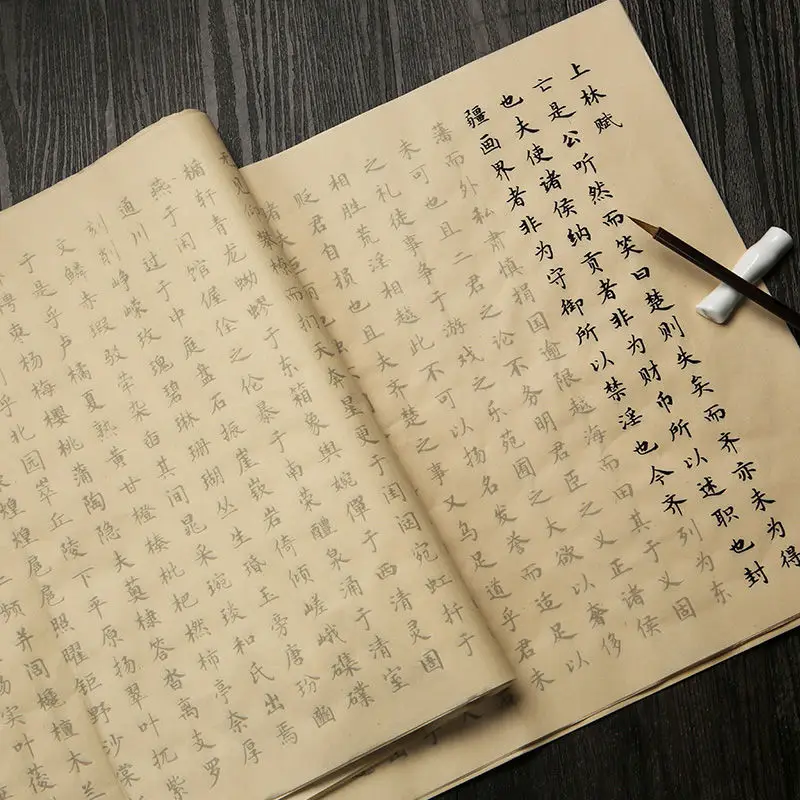 上林赋
亡是公听然而笑曰楚则失矣而齐亦未为得
也夫使诸侯纳贡者非为财币所以述职也封
疆画界者非为守御所以禁淫也今齐列为东
藩而外私肃慎捐国逾限越海而田其于义固
未可也且二君之论不务明君臣之义正诸侯
之礼徒事争于游戏之乐苑囿之大欲以奢侈
相胜荒淫相越此不可以扬名发誉而适足以
贬君自损也且夫齐楚之事又乌足道乎君未
诸
见仰攀橑而扪天奔星更于闺闼宛虹扞于
楯轩青龙蚴蟉于东箱象舆婉僤于西清灵圄
燕于闲馆偓佺之伦暴于南荣醴泉涌于清室
通川过于中庭盘石振崖嵚岩倚倾嵯峨磼礏
刻削峥嵘玫瑰碧琳珊瑚丛生瑉玉旁唐玢豳
文鳞赤瑕驳荦杂臿其间晁采琬琰和氏出焉
于是乎卢橘夏熟黄甘橙楱枇杷橪柿亭柰厚
枣杨梅樱桃蒲陶隐夫薁棣答沓离支罗
乎北园丘陵下平原扬翠叶扤紫
煌扈扈照曜钜野沙棠
频并闾欃檀木兰
实叶葰